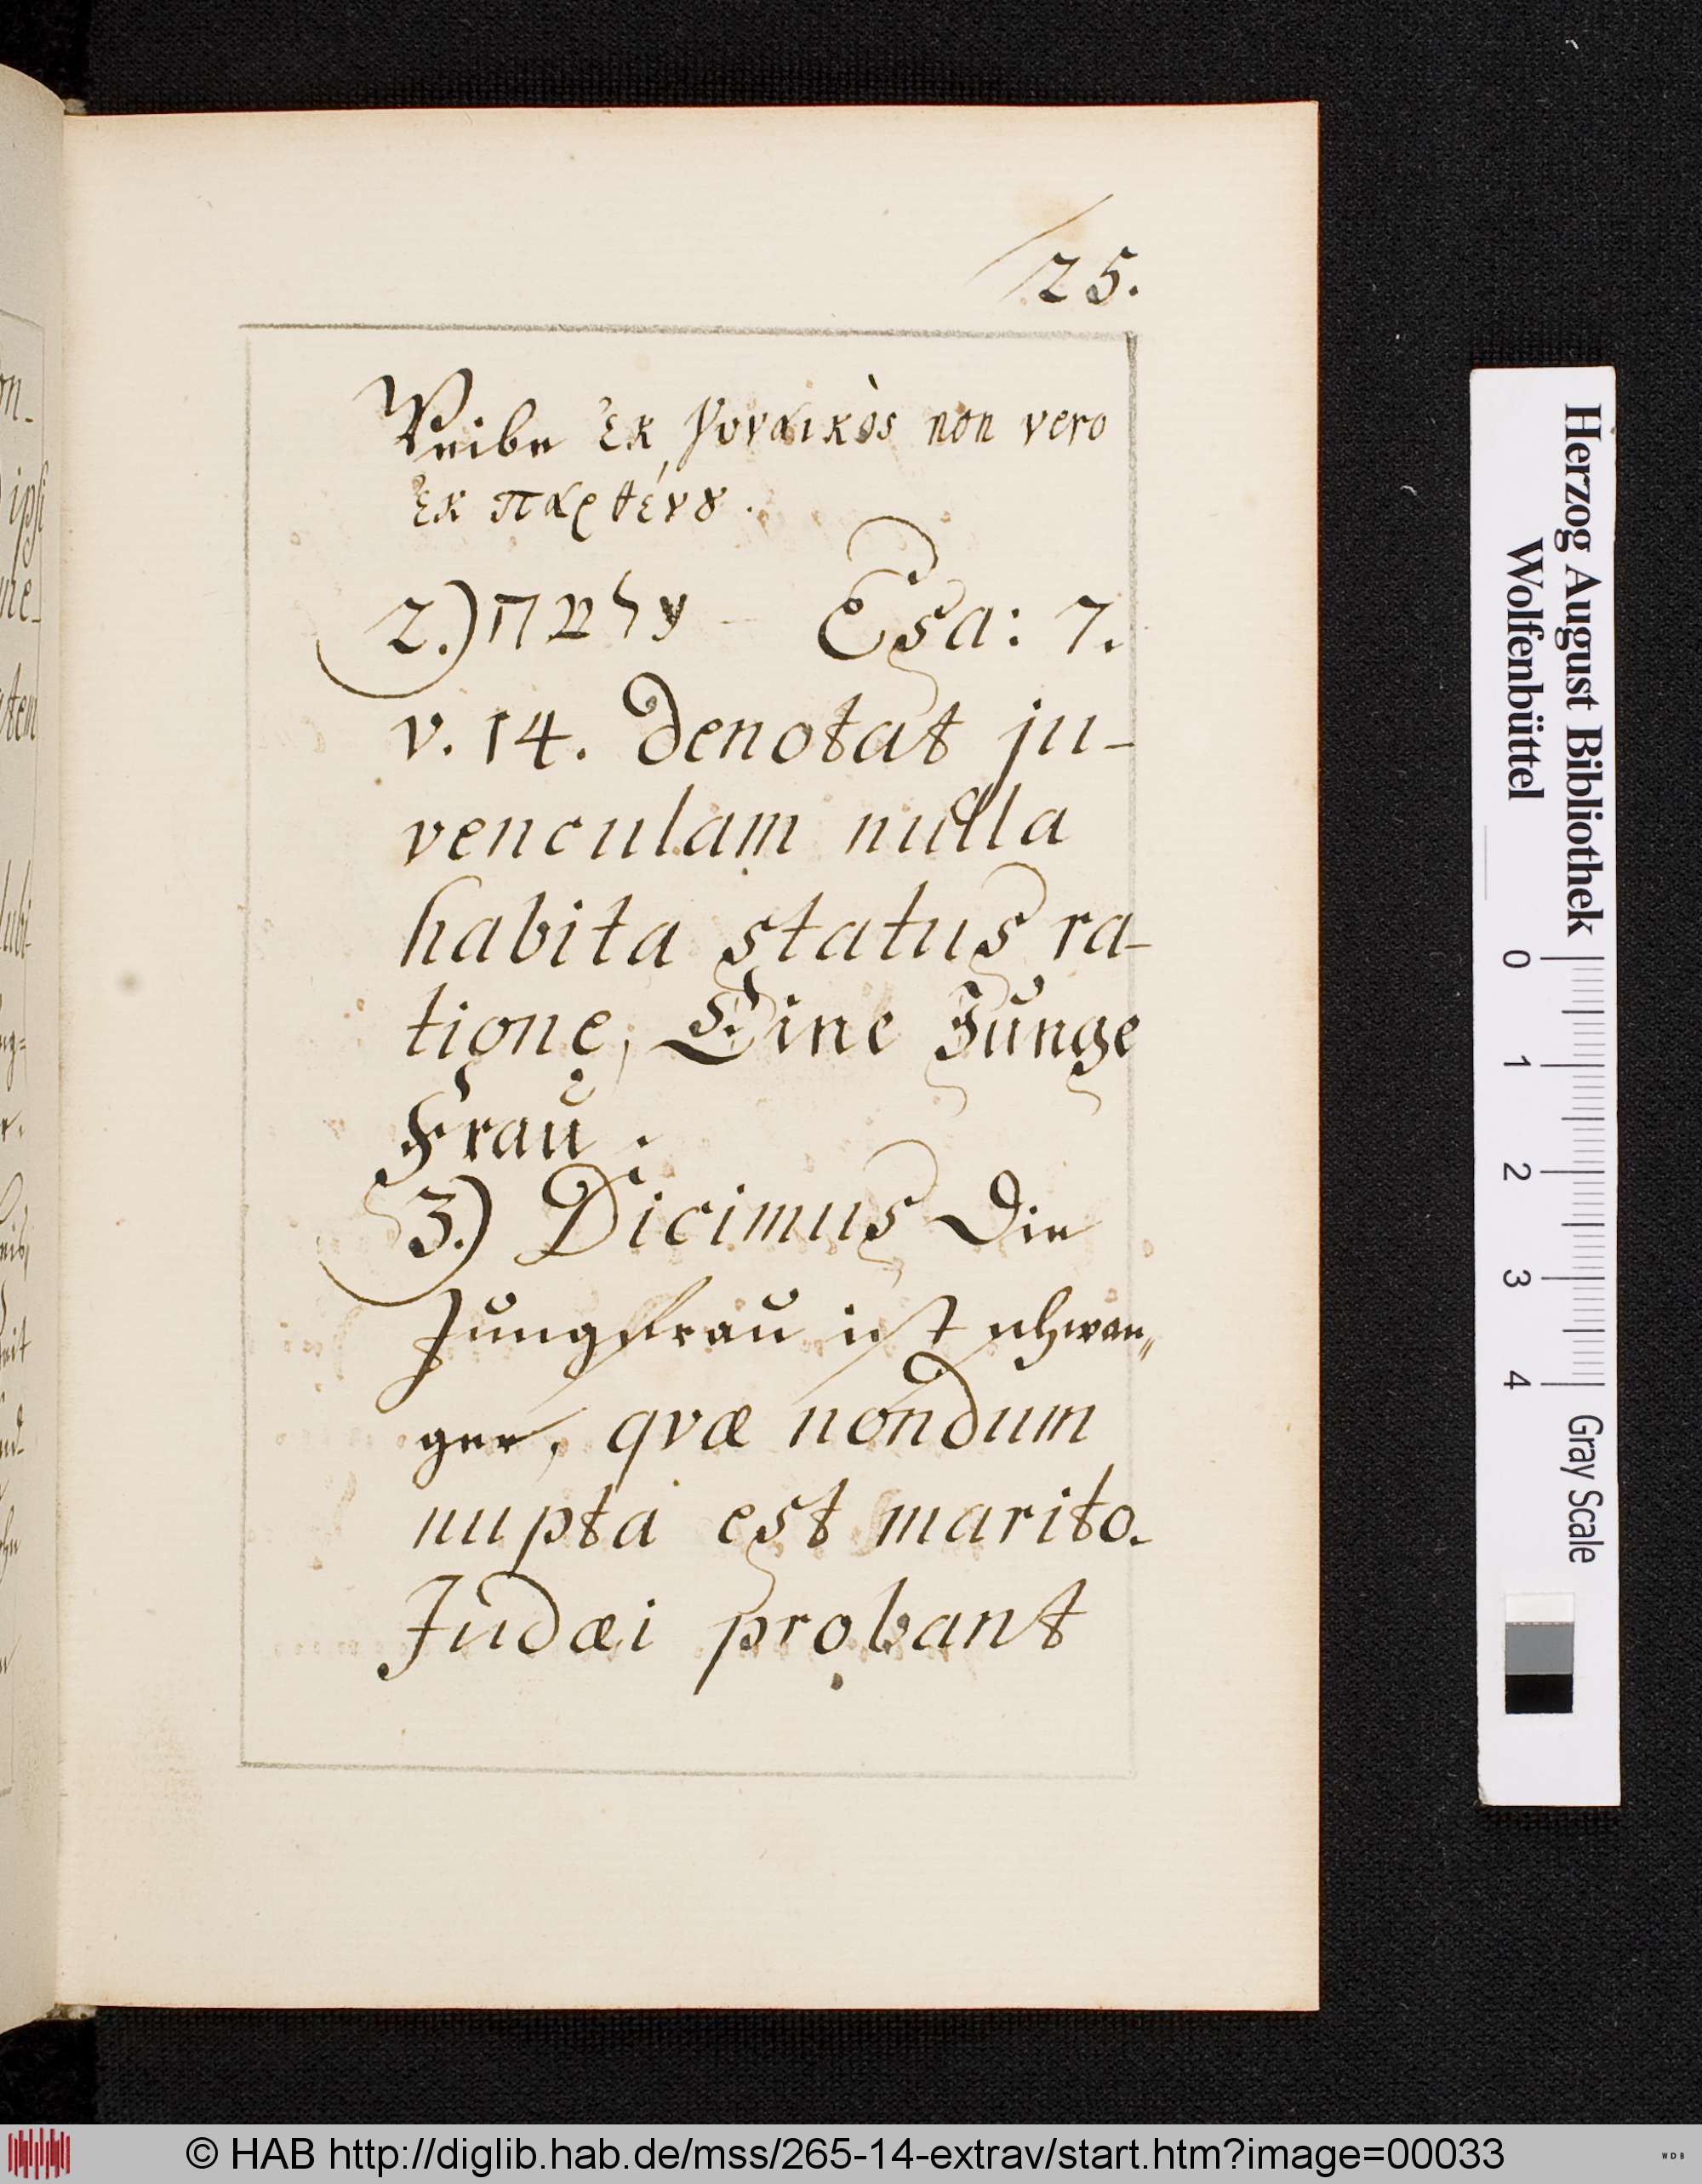 25.
Weibe ἐκ γυναικὸς non vero
ἐκ παρθένȣ.
2.) עלמה Esa: 7.
v. 14. denotat ju-
venculam nulla
habita status ra-
tione, Eine Junge
Frau.
3.) Dicimus Die
Jungfrau ist schwan„
ger, qvæ nondum
nupta est marito.
Judæi probant
Herzog August Bibliothek
Wolfenbüttel
0 1 2 3 4 Gray Scale
© HAB http://diglib.hab.de/mss/265-14-extrav/start.htm?image=00033
WDB